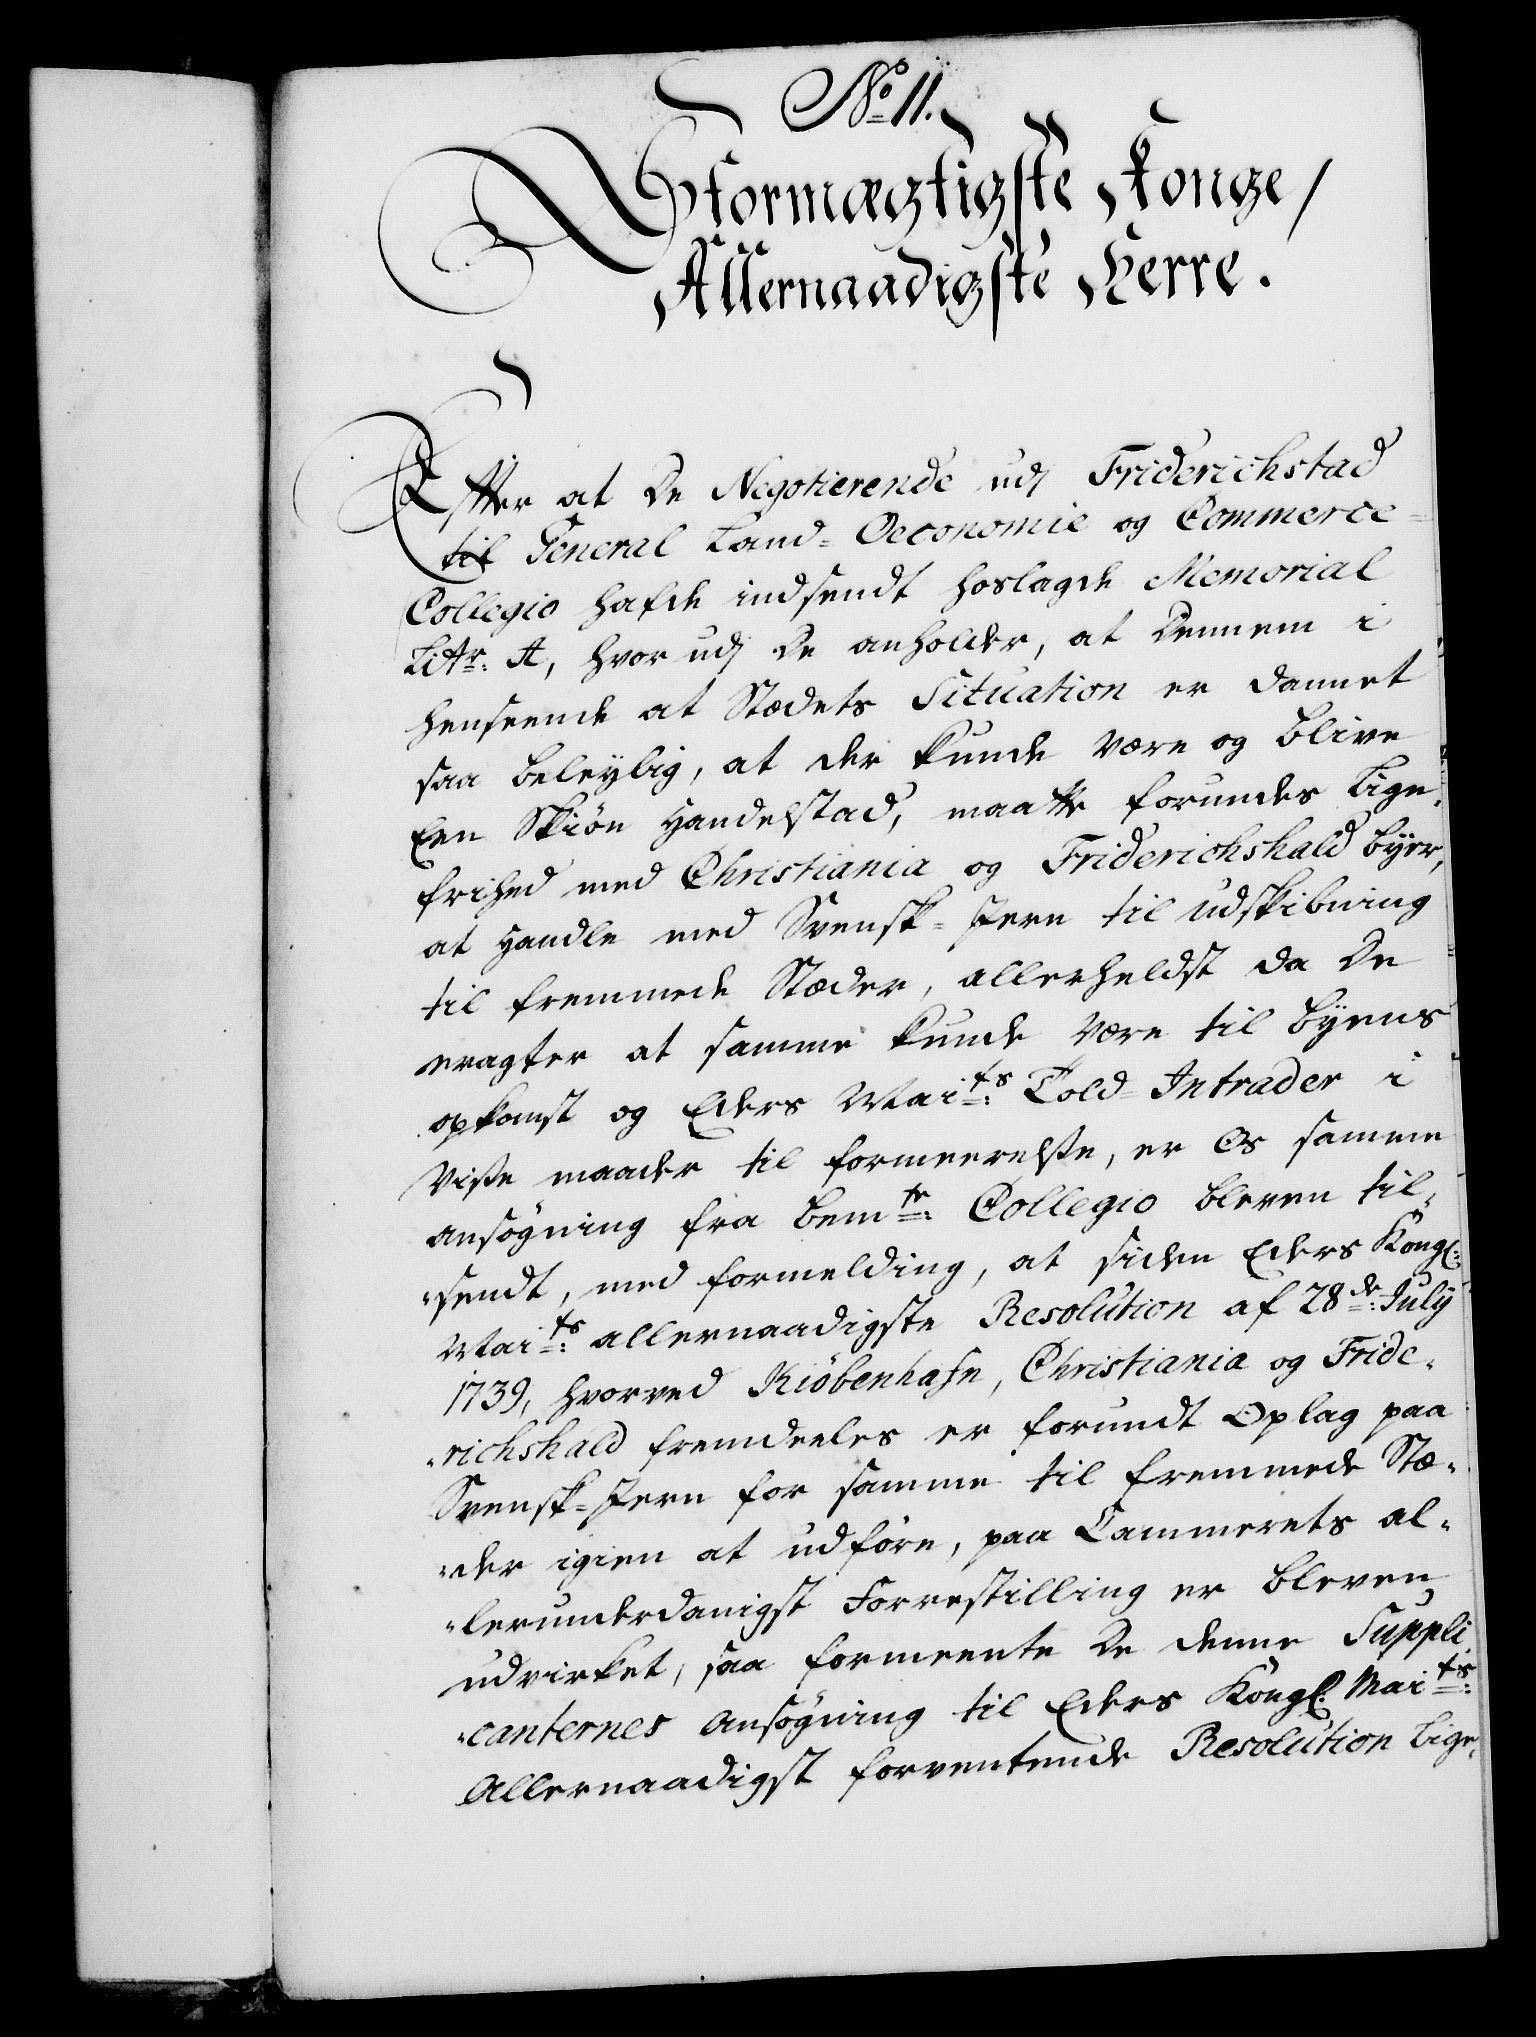 No 11.
Stormægtigste Konge /
Allernaadigste Herre.
Efter at De Negotierende udj Friderichstad
til General Land- Oeconomie og Commerce-
Collegio hafde indsendt hoslagde Memorial
Litr: A, hvor udj De anholder, at dennem i
henseende at Stædets Situation er dannet
saa beleylig, at der kunde være og blive
Een Skiøn Handelstad, maatte forundes Lige
frihed med Christiania og Friderichshald byer,
at Handle med Svensk-Jern til udskibning
til fremmede Stæder, allerheldst da De
eragter at samme kunde være til byens
opkomst og Eders Maits: Told-Intrader i
visse maader til formeerelse, er Os samme
ansøgning fra bemte: Collegio bleven til-
sendt, med formelding, at siden Eders Kongl:
Maits: allernaadigste Resolution af 28de: July
1739, hvorved Kiöbenhafn, Christiania og Fride-
richshald fremdeeles er forundt Oplag paa
Svensk-Jern for samme til fremmede Stæ-
der igien at udføre, paa Cammerets al-
lerunderdanigst Forrestilling er bleven
udvirket, saa formeente De denne Suppli
canternes Ansøgning til Eders Kongl: Maits:
Allernaadigst forventende Resolution lige-